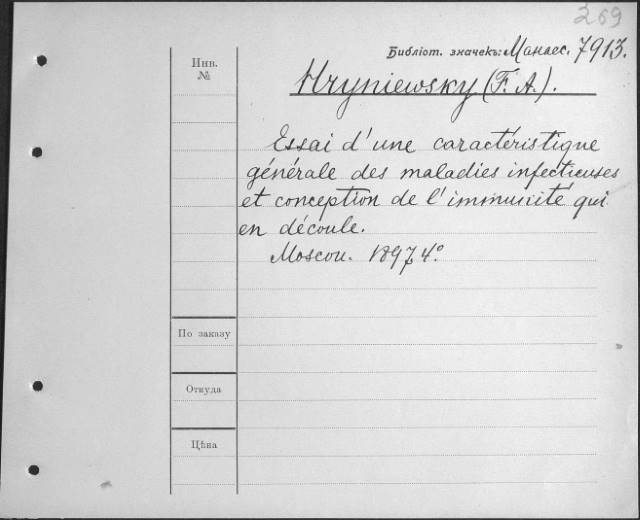 269
Библіот. значекъ: Манасс. 7913.
Инв.
№
Hryniewsky (F. A.).
Essai d'une caractéristique
générale des maladies infectieuses
et conception de l'immunité qui
en découle.
Moscou. 1897 4°.
По заказу
Откуда
Цѣна